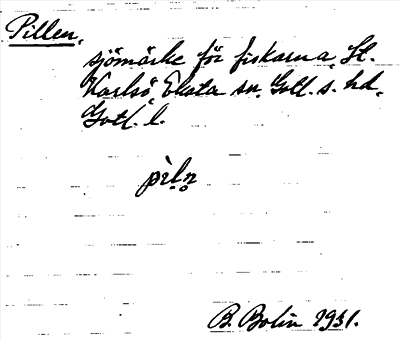 Pillen,
sjömärke för fiskarna, St.
Karlsö Eksta sn. Gotl. s. hd.
Gotl. l.
pìl̥n̥
B. Bolin 1931.